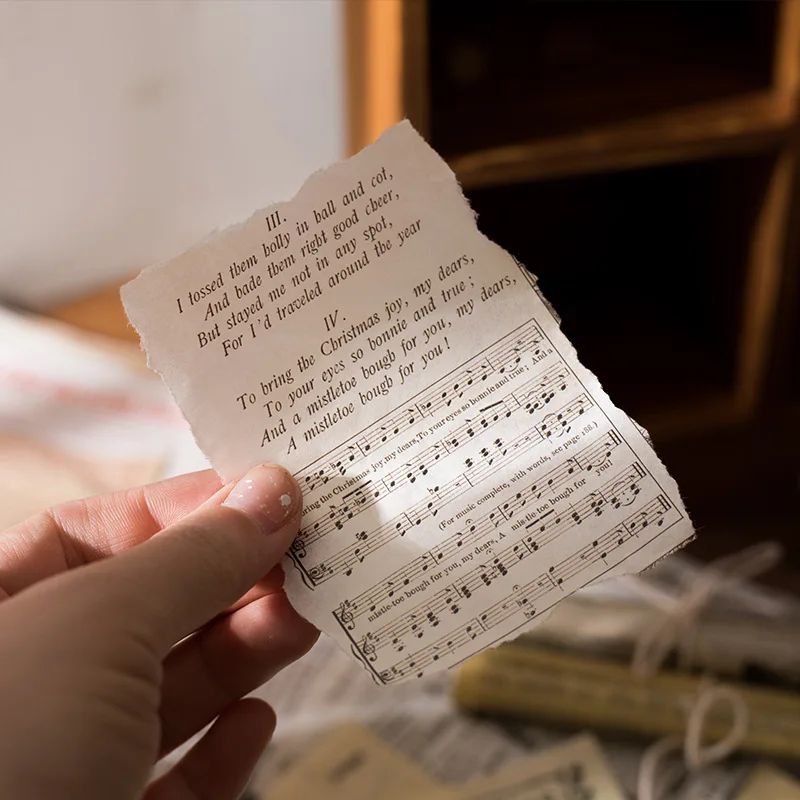 III.
I tossed them holly in hall and cot,
And bade them right good cheer,
But stayed me not in any spot,
For I'd traveled around the year
IV.
To bring the Christmas joy, my dears,
To your eyes so bonnie and true;
And a mistletoe bough for you, my dears,
A mistletoe bough for you!
bring the Christmas joy, my dears, To your eyes so bonnie and true; And a
(For music complete, with words, see page 188.)
mistle-toe bough for you, my dears, A mis-tle toe bough for you!